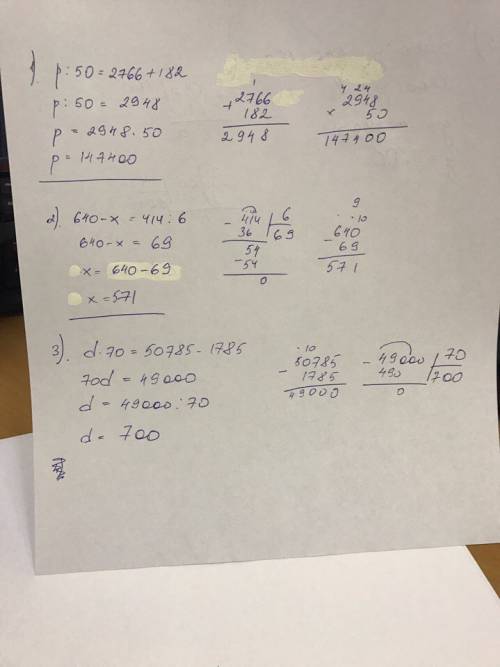 1). p : 50 = 2766 + 182
p : 50 = 2948
p = 2948 · 50
p = 147400
1
+ 2766
182
2948
4 2 4
2948
× 50
147400
2). 640 - x = 414 : 6
640 - x = 69
x = 640 - 69
x = 571
- 414 | 6
36 | 69
54
- 54
0
9
· · 10
- 640
69
571
3). d · 70 = 50785 - 1785
70d = 49000
d = 49000 : 70
d = 700
· 10
- 50785
1785
49000
- 49000 | 70
490 | 700
0